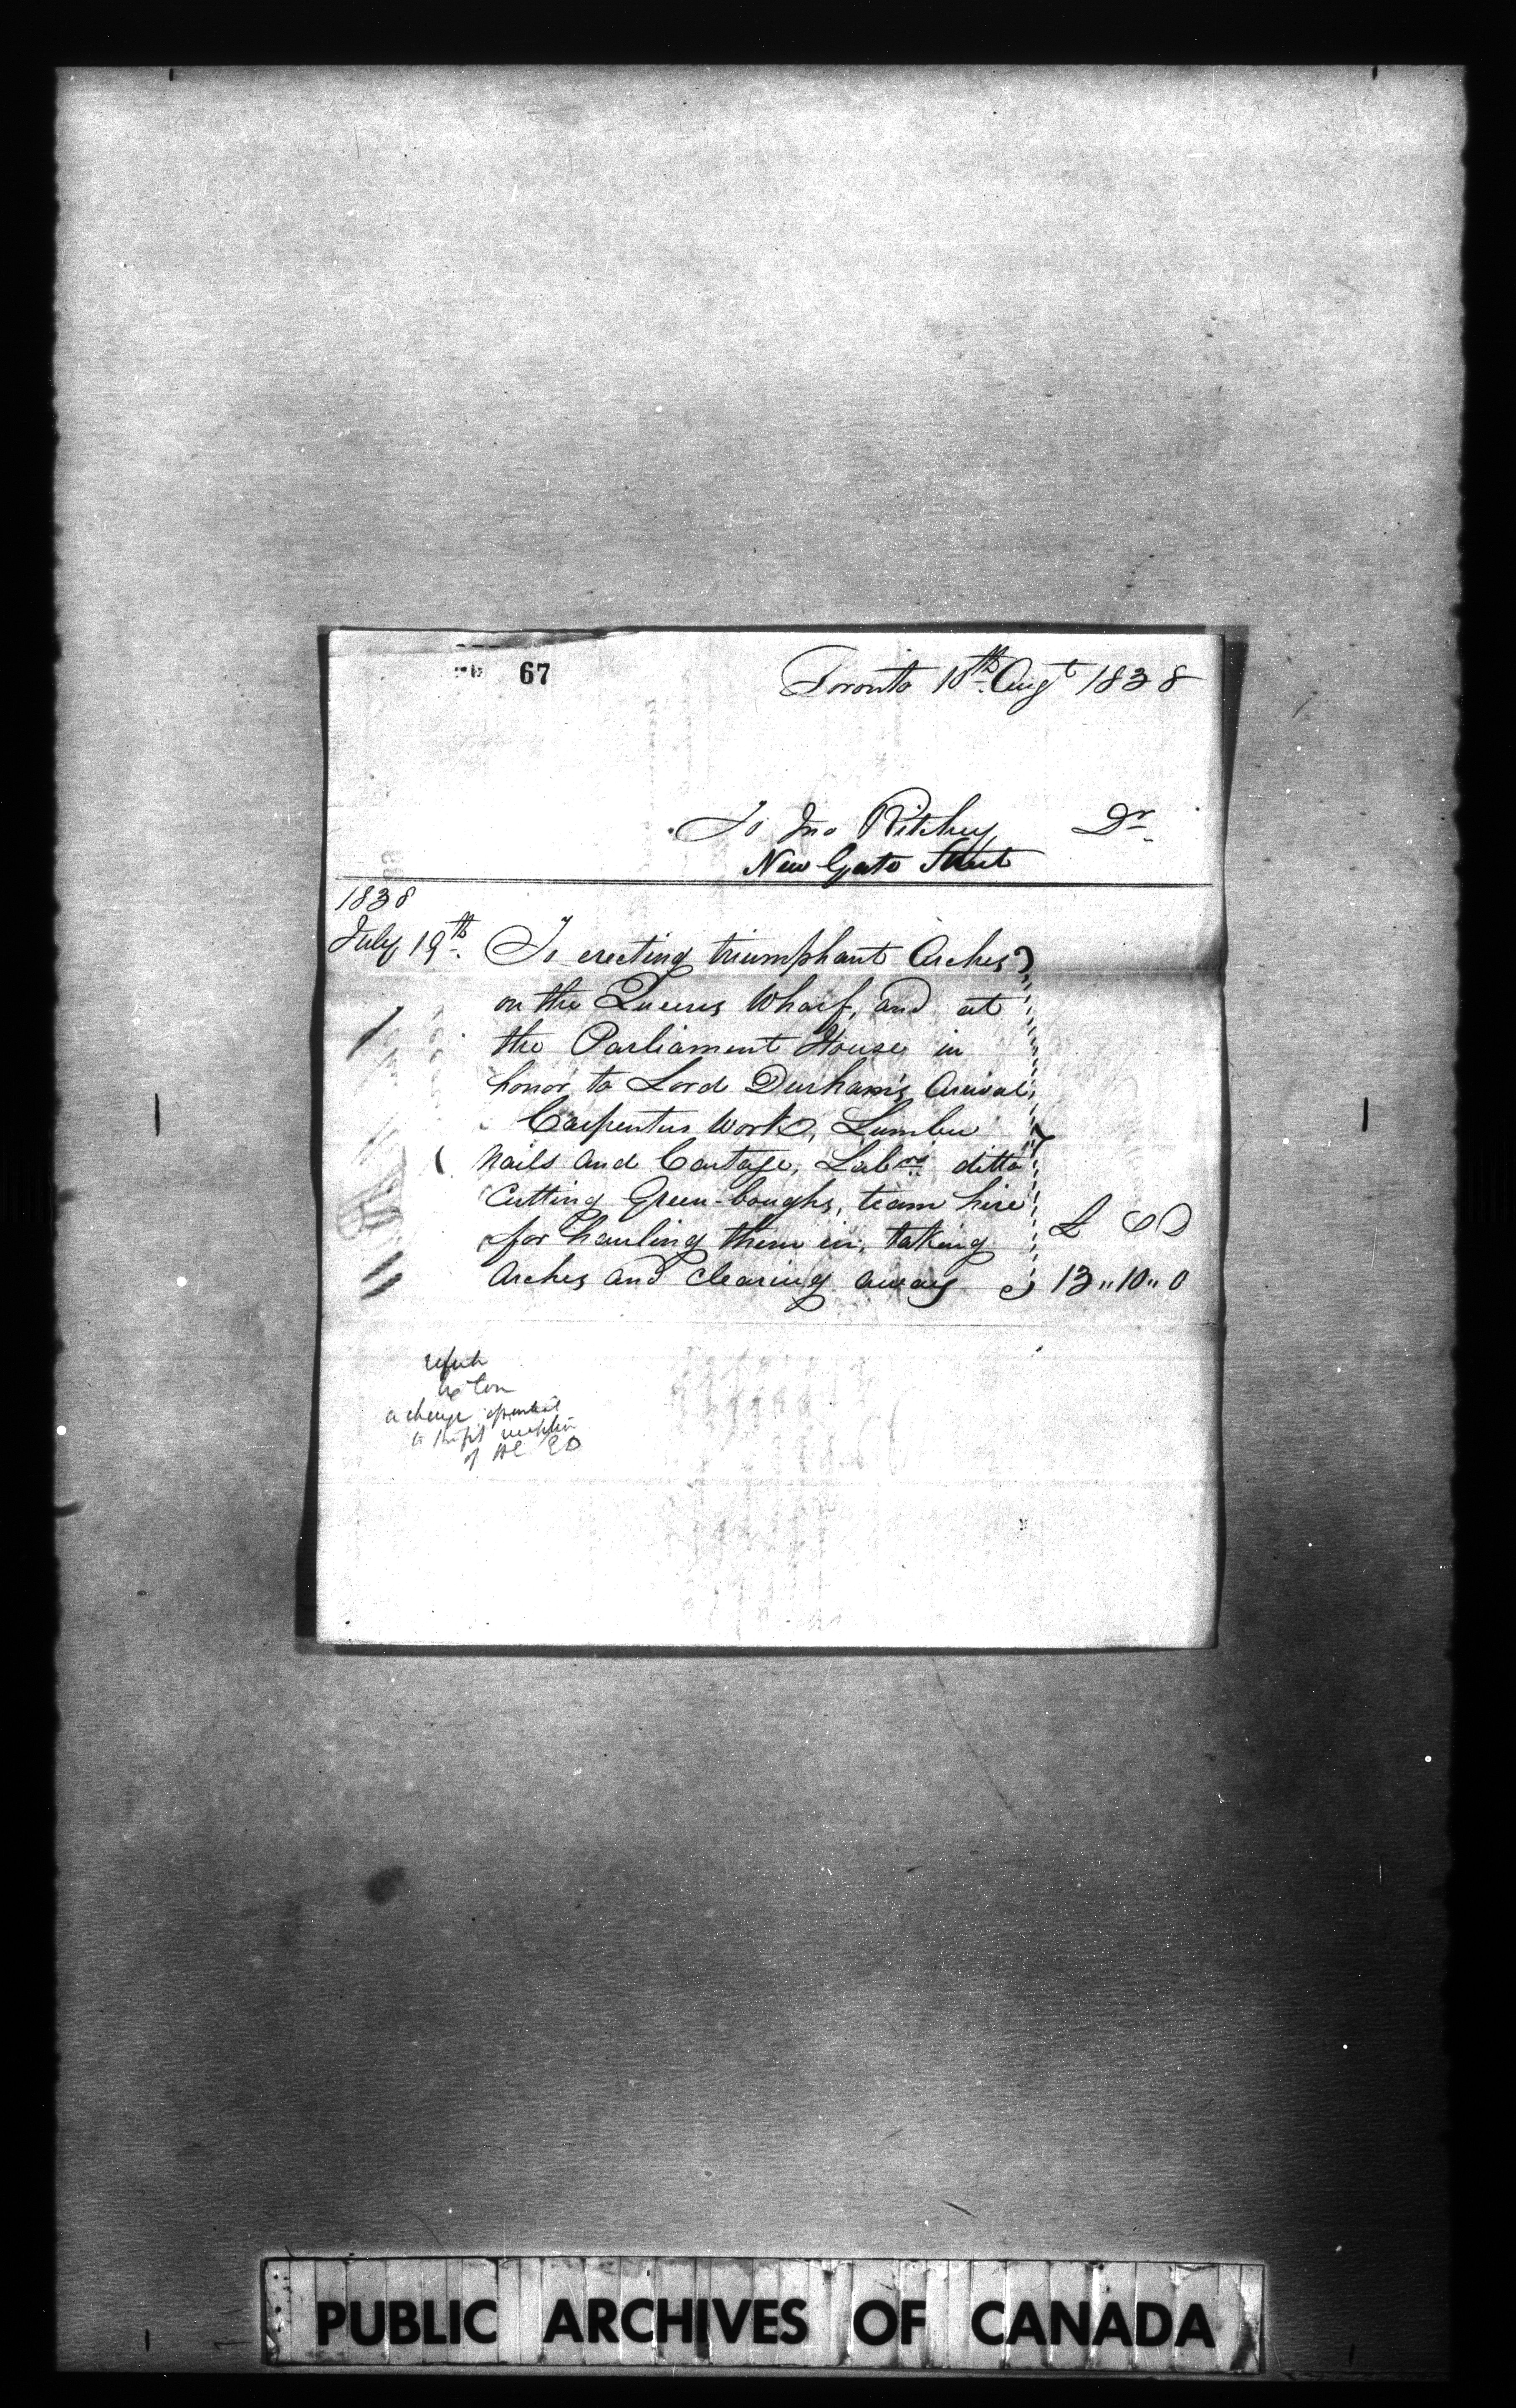 67
Toronto 10th Augt 1838
To Jno Ritchey Dr
New Gate Street
1838
July 19th To erecting triumphant Arches
on the Queens Wharf, and at
the Parliament House in
honor to Lord Durham's Arival,
Carpenters Work, Lumber
Nails and Cartage, Labrs ditto
Cutting Green-boughs, team hire
for hauling them in, taking
£ S D
Arches and Clearing away 13 " 10 " 0
a charge
of
PUBLIC ARCHIVES OF CANADA